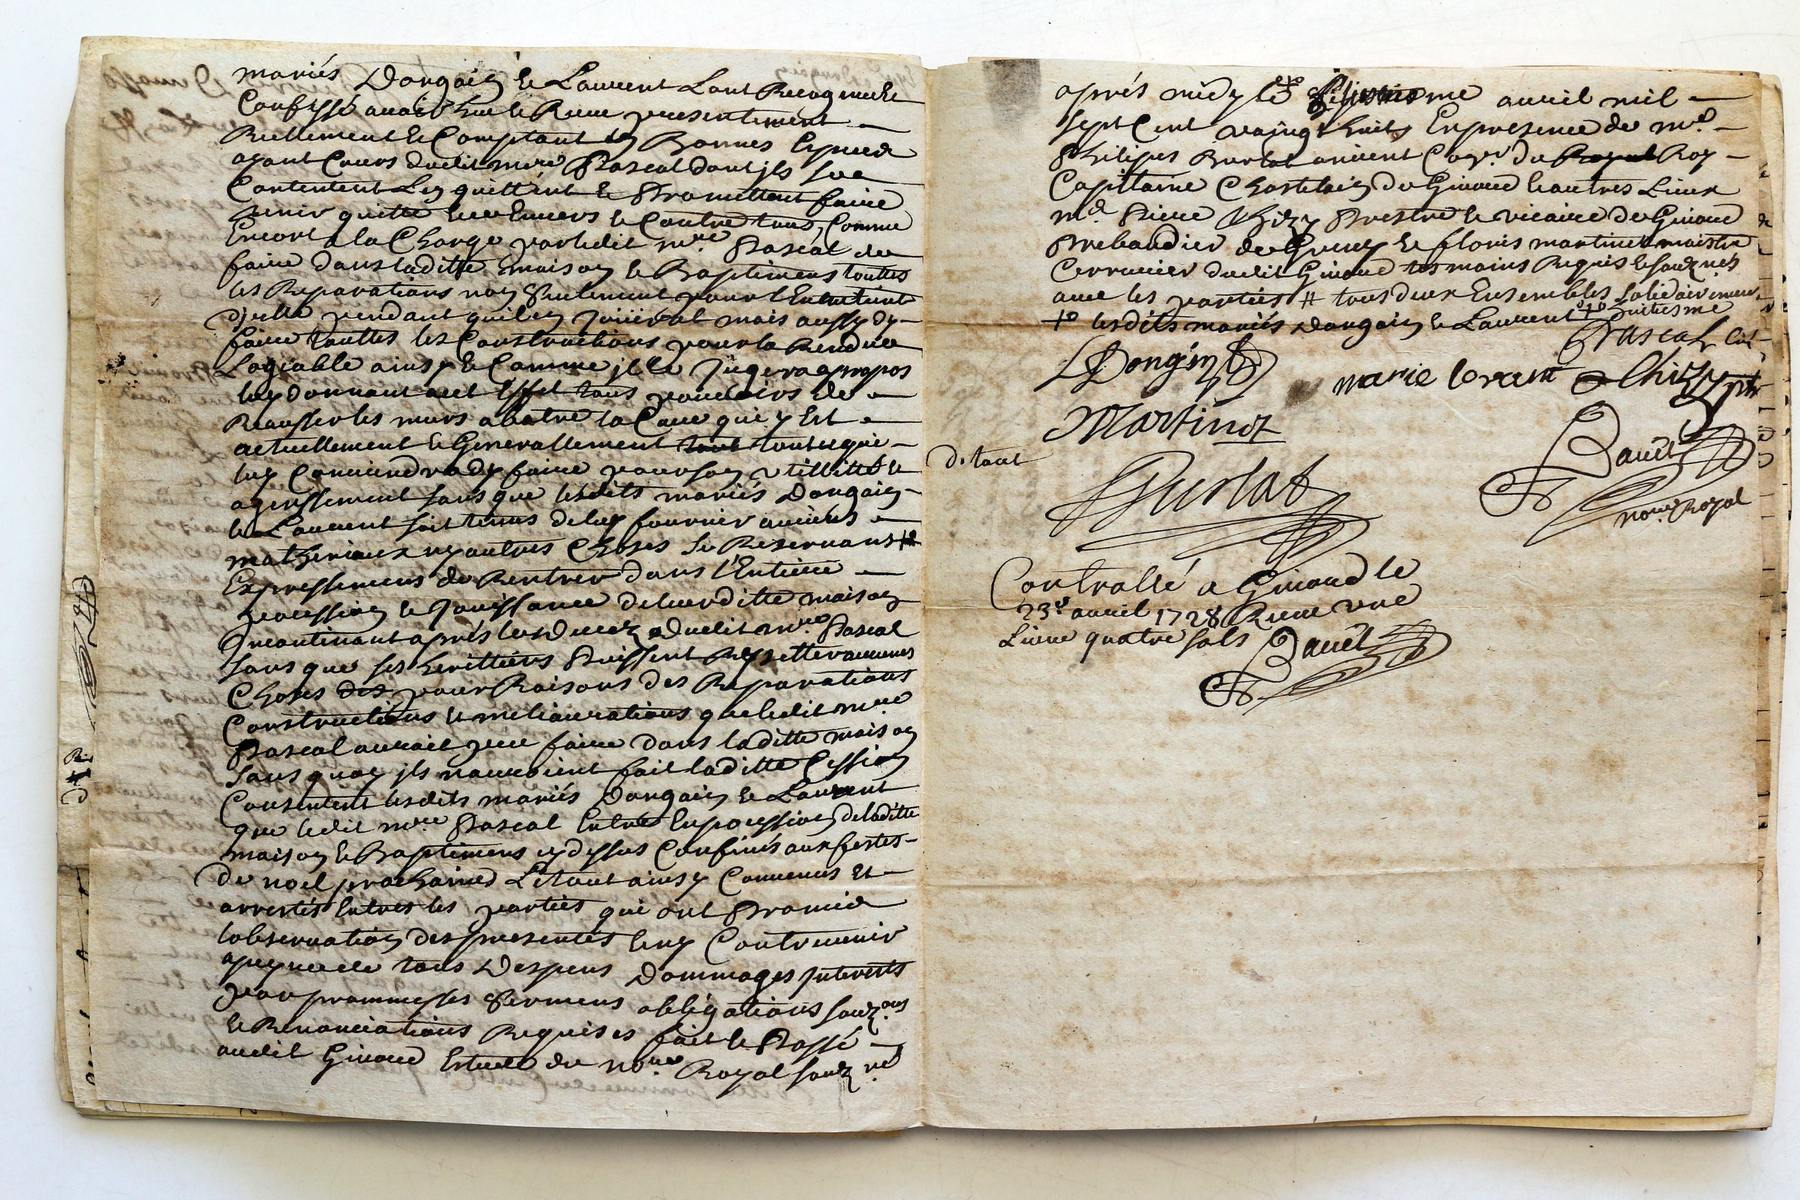 mariés Dongain & Laurent L'ont Recognu &
Confessé avoir heu & Receu presentement
Reellement & Comptant En Bonnes Especes
ayant Cours dudit mre Pascal dont jls se
Contentent Len quittent & Promettent faire
tenir quitte envers & Contre tous, Comme
Encore a la Charge par ledit mre Pascal de
faire dans laditte maison & Baptimens touttes
les Reparations non Seulement pour l'Entretient
d'jcelle pendant quil en Joüirat mais aussy dy
faire touttes les Constructions pour la Rendre
Logeable ainsy & Comme jl le Jugera apropos
luy donnant a cet Effet tous pouvoirs de
Reausser les murs abatre la Cave qui y Est
actuellement & Generallement tout ce que
luy Conviendra dy faire pour son Utillitté &
agreissement sans que lesdits mariés Dongain
& Laurent soit tenus de luy fournir aucuns
matheriaux ny autres Choses Se Reservant
Expressement de Rentrer dans l'Entiere
possession & Jouissance de leurditte maison
Jncontinant aprés le decez dudit mre Pascal
sans que ses heritiers Puissent Repetter aucunes
Choses pour Raisons des Reparations
Constructions & meliaurations que ledit mre
Pascal auroit peu faire dans laditte maison
sans quoy jls n'auroient fait laditte Cession
Consentent lesdits mariés Dongain & Laurent
que ledit mre Pascal Entre En possession de laditte
maison & Baptimens cy dessus Confinés aux festes
de noel prochaines L'étant ainsy Convenus Et
arrestés Entre les parties qui ont Promis
lobservation des presentes & ny Contrevenir
a peyne de tous Despens Dommages Interests
par prommesses Sermens obligations souz.ons
& Renonciations Requises fait & Passé
audit Givord Estude du nore Royal souz.né
aprés midy le huitisme avril mil
sept Cent vaingt huit En presence de mr
Philipes Burlat ancient du Roy
Capittaine Chastelain de Givord & autres Lieux
mre Pierre Thizy Prestre & vicaire de Givord
Prebandier de & floris martinot maistre
Cerrurier dudit Givord tesmoins Requis & souz.nés
avec les parties # tous deux Ensembles solidairement
+o lesdits mariés Dongain & Laurent
Pascal
L Dongoin
marie lorant
Thizy ptre
Martinot
de tout
Burlat
Bavet
nore Royal
Controllé a Givord le
23e avril 1728 Receu une
Livre quatre sols
Bavet